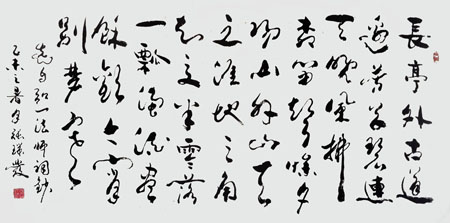 長亭外古道
邊芳草碧連
天晚風拂
柳笛聲殘夕
陽山外山天
之涯地之角
知交半零落
一瓢濁酒盡
餘歡今宵
別夢寒
弘一法師詞
乙未之春月